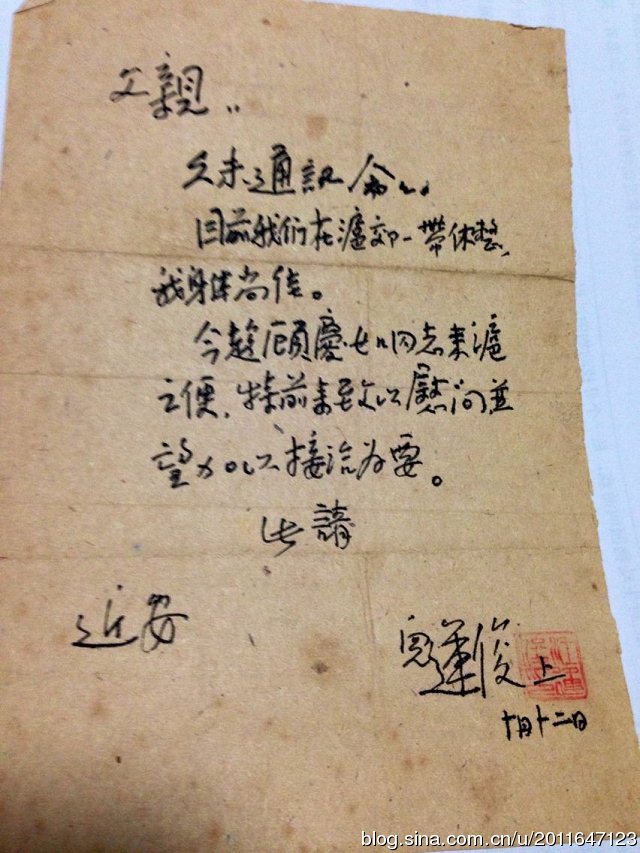 父親：
久未通訊念念。
目前我们在滬郊一帶休整，
我身体尚佳。
今趁顾慶七同志来滬
之便，特前来致以慰问並
望加以接洽为要。
此請
近安
兒運俊上
十月十二日
blog.sina.com.cn/u/2011647123